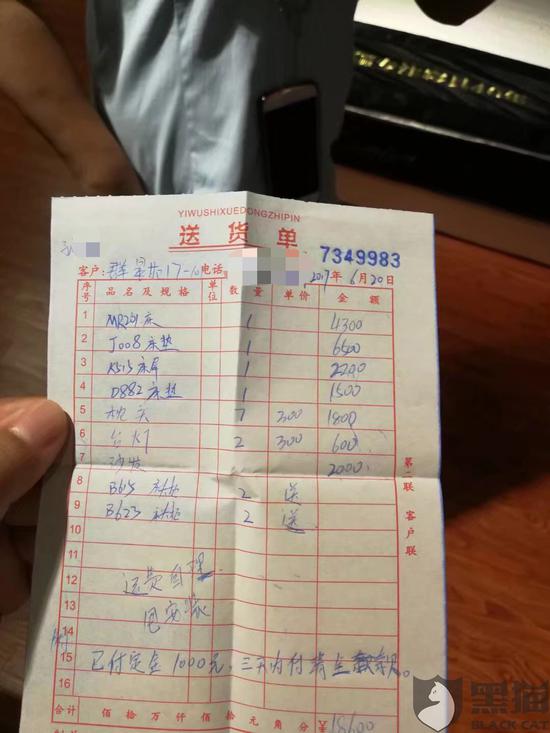 YIWUSHIXUEDONGZHIPIN
送 货 单
7349983
客户: 群星 17-6 电话 2017年6月20日
序号 品名及规格 单位 数量 单价 金额
1 MR201床 1 4300
2 J008床垫 1 6500
3 1 2200
4 D882床垫 1 1500
5 枕头 7 300 1800
6 台灯 2 300 600
7 沙发 2000
8 B615 床头柜 2 送
9 B623 床头柜 2 送
10
11
12 运费自理
13 包安装
14
15 已付定金1000元，三天内付清全款。
16
合计 佰 拾 万 仟 佰 拾 元 角 分 ¥18600
第二联 客户联
黑猫
BLACK CAT